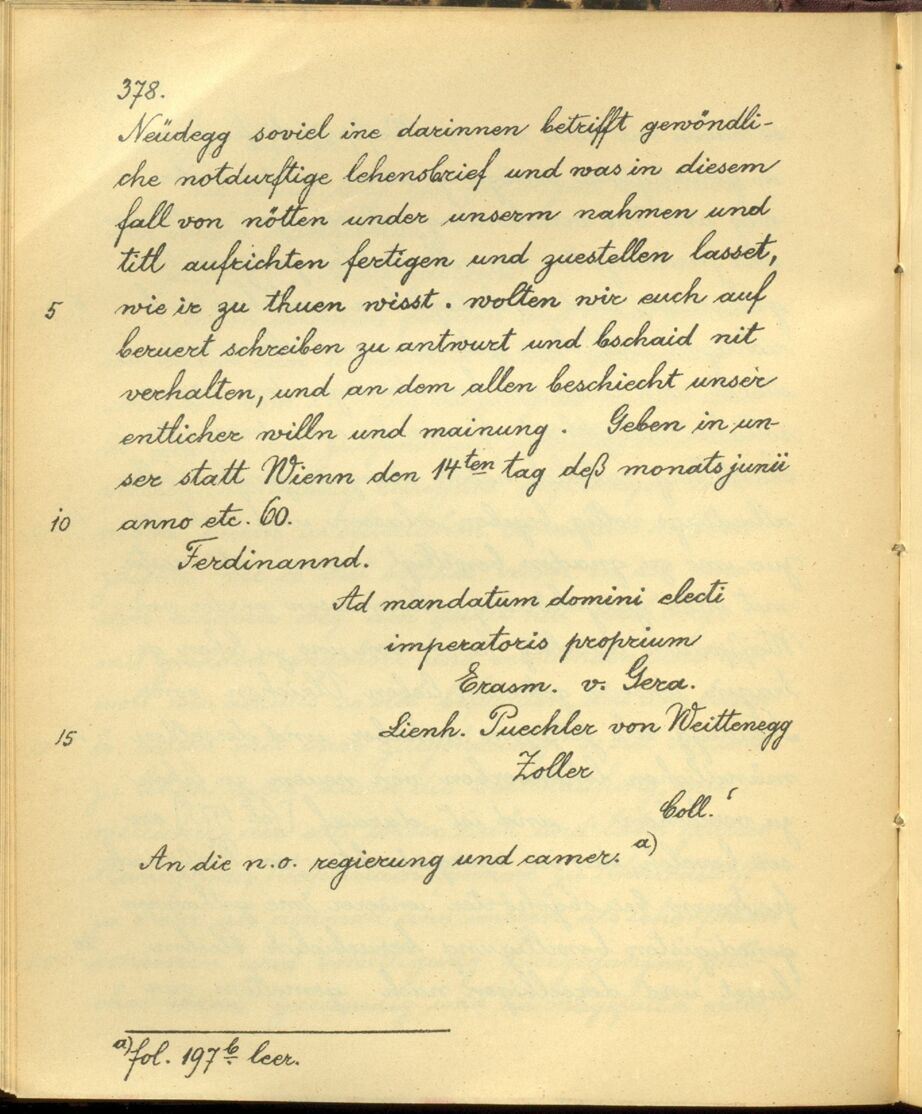 378.
Neüdegg soviel ine darinnen betrifft gewöndli-
che notdurftige lehensbrief und was in diesem
fall von nötten under unserm nahmen und
titl aufrichten fertigen und zuestellen lasset,
5 wie ir zu thuen wisst. wolten wir euch auf
beruert schreiben zu antwurt und bschaid nit
verhalten, und an dem allen beschiecht unser
entlicher willn und mainung. Geben in un-
ser statt Wienn den 14ten tag deß monats junii
10 anno etc. 60.
Ferdinannd.
Ad mandatum domini electi
imperatoris proprium
Erasm. v. Gera.
15 Lienh. Puechler von Weittenegg
Zoller
Coll.
An die n.o. regierung und camer. a)
a) fol. 197b leer.